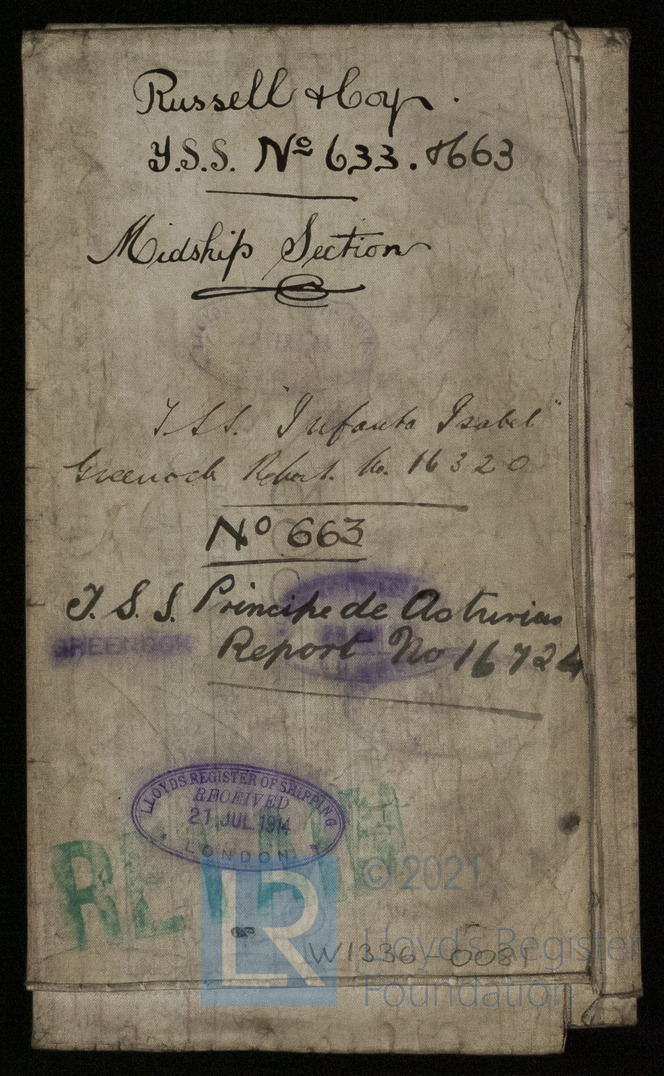 Russell & Coy.
T.S.S. No 633. & 663
Midship Section
T.S.S. "Infanta Isabel"
Greenock Report. No. 16320
No 663
T.S.S. Principe de Asturias
GREENOCK
Report No 16724
LLOYDS REGISTER OF SHIPPING
RECEIVED
21 JUL 1914
LONDON
LR
© 2021
W1336 0081
Lloyd's Register
Foundation